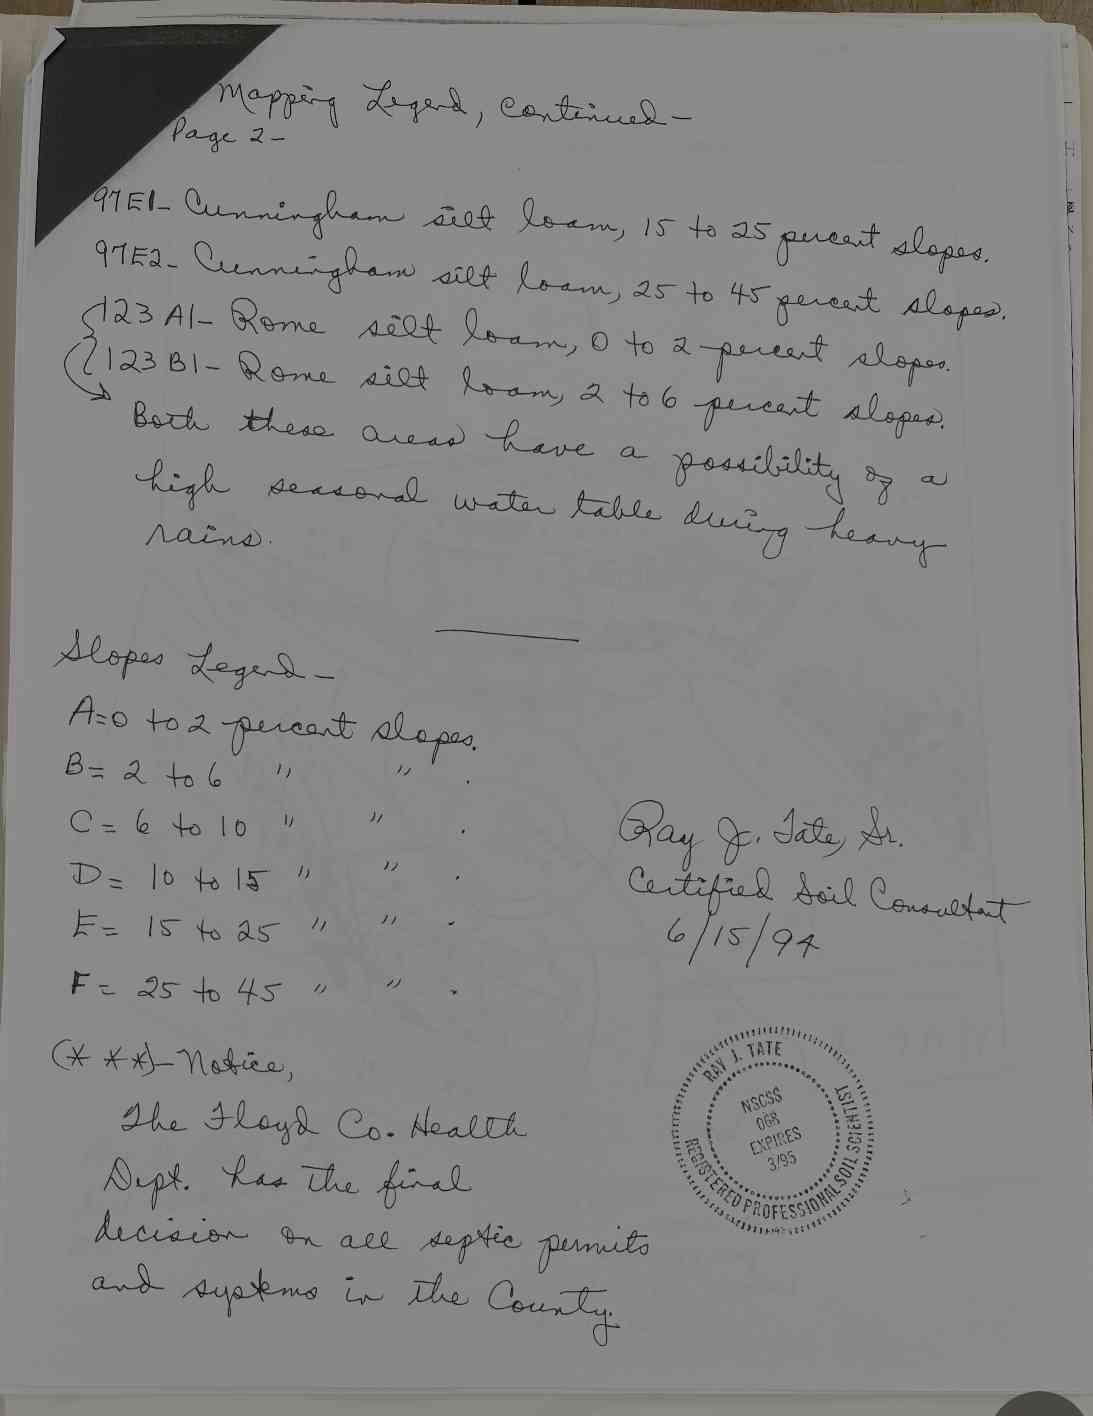 Mapping Legend, continued-
Page 2-
97E1- Cunningham silt loam, 15 to 25 percent slopes.
97E2- Cunningham silt loam, 25 to 45 percent slopes.
123 A1- Rome silt loam, 0 to 2 percent slopes.
123 B1- Rome silt loam, 2 to 6 percent slopes.
Both these areas have a possibility of a
high seasonal water table during heavy
rains.
Slopes Legend-
A=0 to 2 percent slopes.
B= 2 to 6 " " .
C= 6 to 10 " " .
D= 10 to 15 " " .
E= 15 to 25 " " .
F= 25 to 45 " " .
Ray J. Tate, Sr.
Certified Soil Consultant
6/15/94
(***)-Notice,
The Floyd Co. Health
Dept. has the final
decision on all septic permits
and systems in the County.
RAY J. TATE
REGISTERED PROFESSIONAL SOIL SCIENTIST
NSCSS
068
EXPIRES
3/95